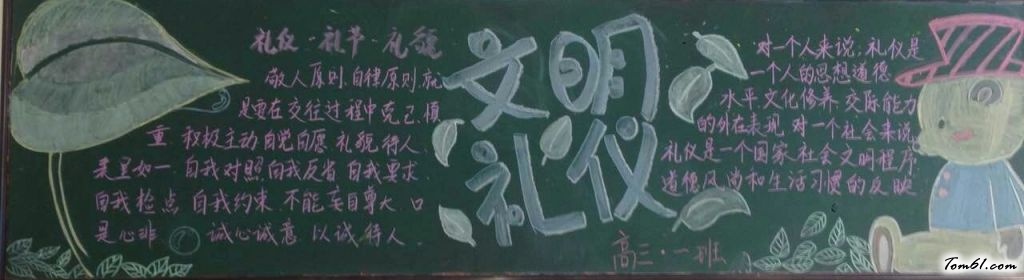 礼仪·礼节·礼貌
敬人原则,自律原则,就
是要在交往过程中克己、慎
重 积极主动 自觉自愿 礼貌待人、
表里如一 自我对照 自我反省 自我要求、
自我检点 自我约束 不能妄自尊大 口
是心非 诚心诚意 以诚待人.
文明
礼仪
高三·一班
对一个人来说,礼仪是
一个人的思想道德
水平 文化修养 交际能力
的外在表现 对一个社会来说
礼仪是一个国家 社会文明程序
道德风尚和生活习惯的反映
Tom61.com